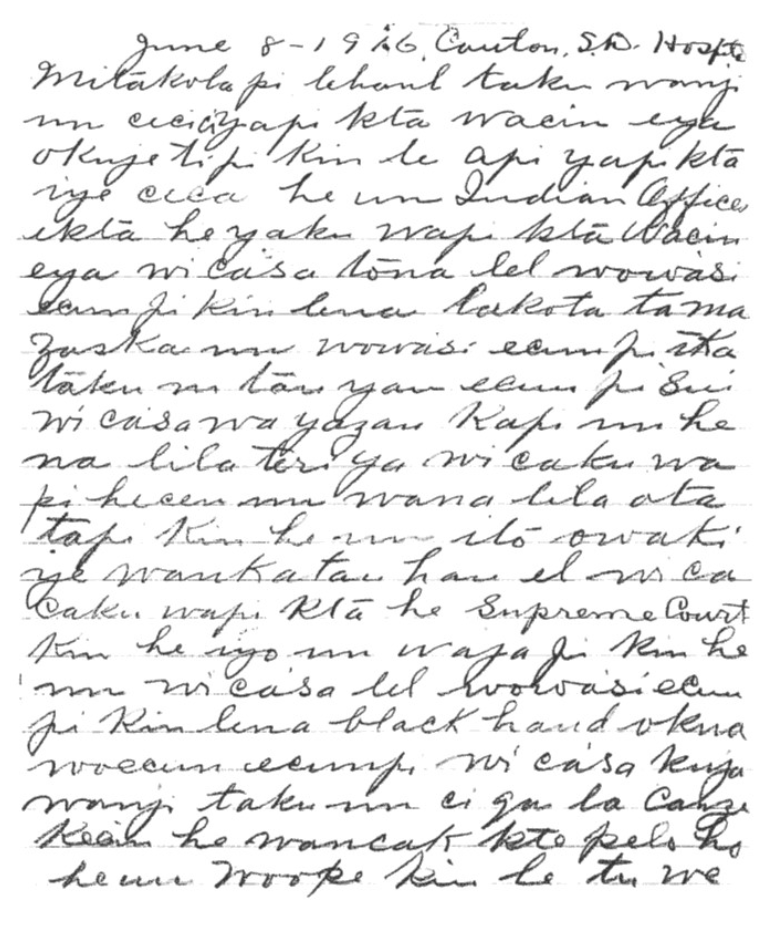 June 8-1926. Canton, S.D. Hospt
Mitakolapi lehanl taku wanji
un ciciyapi kta wacin eya
okuje tipi kin le api yapi kta
iye cica he un Indian Office
ekta heyaku wapi kta wacin
eya wicasa tona lel wowasi
ecunpi kin lena Lakota tama
zaska un wowasi ecunpi ska
taku ni tan yan ecun pi Sni
wicasa wayazan Kapi un he
na lila teriya wicaku wa
pi hecen un wana lila ota
tapi Kin he un ito owaki
ye wankatan han el wica
caku wapi kta he Supreme Court
Kin he iyo un wapi Kin he
un wicasa lel wowasi ecun
pi Kin lena black hand okna
woecun ecunpi wicasa kuja
wanji taku un ci gu la Canze
Kecin he wancak kte pelo ho
he un Woope kin le tu we